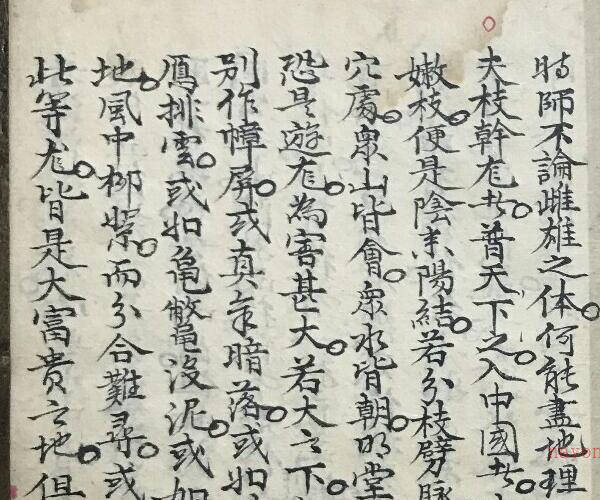 時師不論雌雄之体何能盡地理
夫枝幹龙者普天下之入中國者
嫩枝便是陰來陽結若分枝劈脉
穴處衆山皆會衆水皆朝明堂
恐是遊龙為害甚大若大之下
别作幛屏或真氣暗落或如
鴈排雲或如龟鱉龟没泥或如
地風中柳絮而分合難尋或
此等龙皆是大富貴之地但